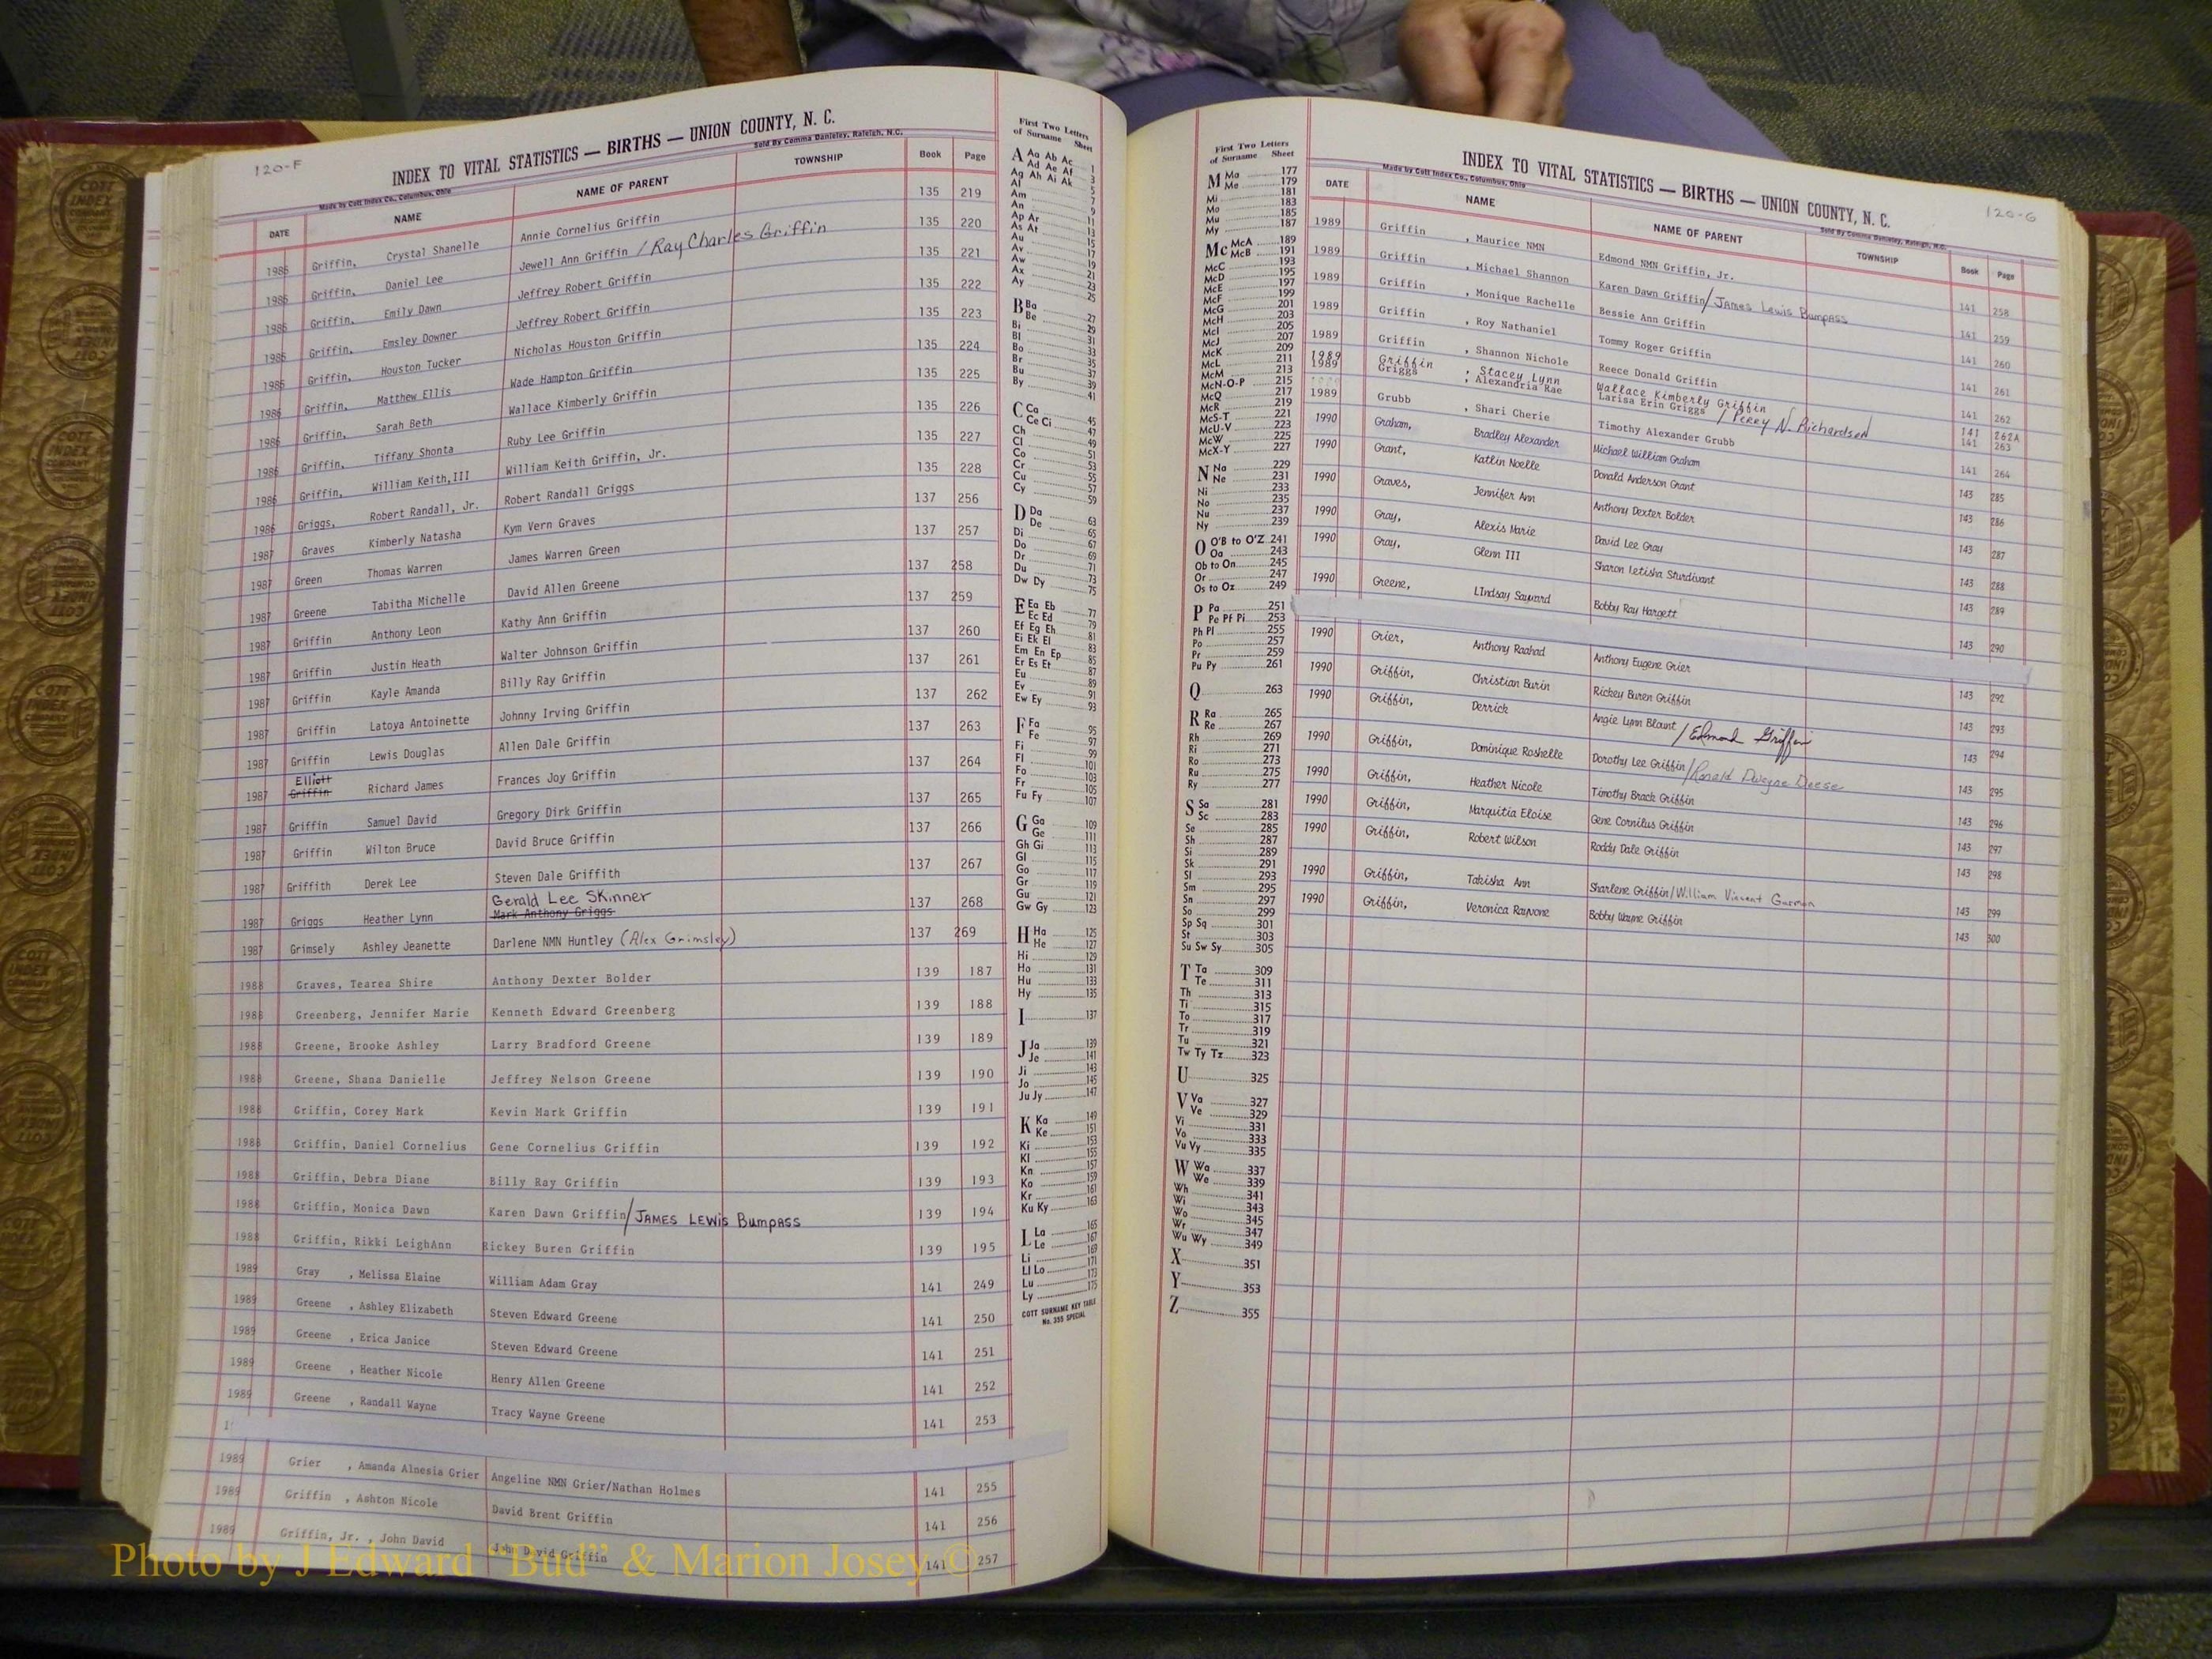 120-F
INDEX TO VITAL STATISTICS — BIRTHS — UNION COUNTY, N. C.
Made by Cott Index Co., Columbus, Ohio
Sold By Comma Danieley, Raleigh, N.C.
DATE NAME NAME OF PARENT TOWNSHIP Book Page
1986 Griffin, Crystal Shanelle Annie Cornelius Griffin 135 219
1986 Griffin, Daniel Lee Jewell Ann Griffin / Ray Charles Griffin 135 220
1986 Griffin, Emily Dawn Jeffrey Robert Griffin 135 221
1986 Griffin, Emsley Downer Jeffrey Robert Griffin 135 222
1986 Griffin, Houston Tucker Nicholas Houston Griffin 135 223
1986 Griffin, Matthew Ellis Wade Hampton Griffin 135 224
1986 Griffin, Sarah Beth Wallace Kimberly Griffin 135 225
1986 Griffin, Tiffany Shonta Ruby Lee Griffin 135 226
1986 Griffin, William Keith,III William Keith Griffin, Jr. 135 227
1986 Griggs, Robert Randall, Jr. Robert Randall Griggs 135 228
1987 Graves Kimberly Natasha Kym Vern Graves 137 256
1987 Green Thomas Warren James Warren Green 137 257
1987 Greene Tabitha Michelle David Allen Greene 137 258
1987 Griffin Anthony Leon Kathy Ann Griffin 137 259
1987 Griffin Justin Heath Walter Johnson Griffin 137 260
1987 Griffin Kayle Amanda Billy Ray Griffin 137 261
1987 Griffin Latoya Antoinette Johnny Irving Griffin 137 262
1987 Griffin Lewis Douglas Allen Dale Griffin 137 263
Elliott
1987 Griffin Richard James Frances Joy Griffin 137 264
1987 Griffin Samuel David Gregory Dirk Griffin 137 265
1987 Griffin Wilton Bruce David Bruce Griffin 137 266
1987 Griffith Derek Lee Steven Dale Griffith 137 267
Gerald Lee Skinner
1987 Griggs Heather Lynn Mark Anthony Griggs 137 268
1987 Grimsely Ashley Jeanette Darlene NMN Huntley (Alex Grimsley) 137 269
1988 Graves, Tearea Shire Anthony Dexter Bolder 139 187
1988 Greenberg, Jennifer Marie Kenneth Edward Greenberg 139 188
1988 Greene, Brooke Ashley Larry Bradford Greene 139 189
1988 Greene, Shana Danielle Jeffrey Nelson Greene 139 190
1988 Griffin, Corey Mark Kevin Mark Griffin 139 191
1988 Griffin, Daniel Cornelius Gene Cornelius Griffin 139 192
1988 Griffin, Debra Diane Billy Ray Griffin 139 193
1988 Griffin, Monica Dawn Karen Dawn Griffin/James Lewis Bumpass 139 194
1988 Griffin, Rikki LeighAnn Rickey Buren Griffin 139 195
1989 Gray , Melissa Elaine William Adam Gray 141 249
1989 Greene , Ashley Elizabeth Steven Edward Greene 141 250
1989 Greene , Erica Janice Steven Edward Greene 141 251
1989 Greene , Heather Nicole Henry Allen Greene 141 252
1989 Greene , Randall Wayne Tracy Wayne Greene 141 253
1989 Grier , Amanda Alnesia Grier Angeline NMN Grier/Nathan Holmes 141 255
1989 Griffin , Ashton Nicole David Brent Griffin 141 256
1989 Griffin, Jr. , John David John David Griffin 141 257
First Two Letters
of Surname Sheet
A Aa Ab Ac 1
Ad Ae Af 3
Ag Ah Ai Ak 5
Al 7
Am 9
An 11
Ap Ar 13
As At 15
Au 17
Av 19
Aw 21
Ax 23
Ay 25
B Ba 27
Be 29
Bi 31
Bl 33
Bo 35
Br 37
Bu 39
By 41
C Ca 45
Ce Ci 47
Ch 49
Cl 51
Co 53
Cr 55
Cu 57
Cy 59
D Da 63
De 65
Di 67
Do 69
Dr 71
Du 73
Dw Dy 75
E Ea Eb 77
Ec Ed 79
Ef Eg Eh 81
Ei Ek El 83
Em En Ep 85
Er Es Et 87
Eu 89
Ev 91
Ew Ey 93
F Fa 95
Fe 97
Fi 99
Fl 101
Fo 103
Fr 105
Fu Fy 107
G Ga 109
Ge 111
Gh Gi 113
Gl 115
Go 117
Gr 119
Gu 121
Gw Gy 123
H Ha 125
He 127
Hi 129
Ho 131
Hu 133
Hy 135
I 137
J Ja 139
Je 141
Ji 143
Jo 145
Ju Jy 147
K Ka 149
Ke 151
Ki 153
Kl 155
Kn 157
Ko 159
Kr 161
Ku Ky 163
L La 165
Le 167
Li 169
Ll Lo 171
Lu 173
Ly 175
COTT SURNAME KEY TABLE
No. 355 SPECIAL
First Two Letters
of Surname Sheet
M Ma 177
Me 179
Mi 181
Mo 183
Mu 185
My 187
Mc McA 189
McB 191
McC 193
McD 195
McE 197
McF 199
McG 201
McH 203
McI 205
McJ 207
McK 209
McL 211
McM 213
McN-O-P 215
McQ 217
McR 219
McS-T 221
McU-V 223
McW 225
McX-Y 227
N Na 229
Ne 231
Ni 233
No 235
Nu 237
Ny 239
O O'B to O'Z 241
Oa 243
Ob to On 245
Or 247
Os to Oz 249
P Pa 251
Pe Pf Pi 253
Ph Pl 255
Po 257
Pr 259
Pu Py 261
Q 263
R Ra 265
Re 267
Rh 269
Ri 271
Ro 273
Ru 275
Ry 277
S Sa 281
Sc 283
Se 285
Sh 287
Si 289
Sk 291
Sl 293
Sm 295
Sn 297
So 299
Sp Sq 301
St 303
Su Sw Sy 305
T Ta 309
Te 311
Th 313
Ti 315
To 317
Tr 319
Tu 321
Tw Ty Tz 323
U 325
V Va 327
Ve 329
Vi 331
Vo 333
Vu Vy 335
W Wa 337
We 339
Wh 341
Wi 343
Wo 345
Wr 347
Wu Wy 349
X 351
Y 353
Z 355
120-G
INDEX TO VITAL STATISTICS — BIRTHS — UNION COUNTY, N. C.
Made by Cott Index Co., Columbus, Ohio
Sold By Comma Danieley, Raleigh, N.C.
DATE NAME NAME OF PARENT TOWNSHIP Book Page
1989 Griffin , Maurice NMN Edmond NMN Griffin, Jr. 141 258
1989 Griffin , Michael Shannon Karen Dawn Griffin/James Lewis Bumpass 141 259
1989 Griffin , Monique Rachelle Bessie Ann Griffin 141 260
1989 Griffin , Roy Nathaniel Tommy Roger Griffin 141 261
1989 Griffin , Shannon Nichole Reece Donald Griffin 141 262
1989 Griffin , Stacey Lynn Wallace Kimberly Griffin 141 262A
1989 Griggs , Alexandria Rae Larisa Erin Griggs / Perry N. Richardson 141 263
1989 Grubb , Shari Cherie Timothy Alexander Grubb 141 264
1990 Graham, Bradley Alexander Michael William Graham 143 285
1990 Grant, Katlin Noelle Donald Anderson Grant 143 286
1990 Graves, Jennifer Ann Anthony Dexter Bolder 143 287
1990 Gray, Alexis Marie David Lee Gray 143 288
1990 Gray, Glenn III Sharon Letisha Sturdivant 143 289
1990 Greene, Lindsay Sayward Bobby Ray Hargett 143 290
1990 Grier, Anthony Raahad Anthony Eugene Grier 143 292
1990 Griffin, Christian Burin Rickey Buren Griffin 143 293
1990 Griffin, Derrick Angie Lynn Blount / Edmond Griffin 143 294
1990 Griffin, Dominique Roshelle Dorothy Lee Griffin/Ronald Dwayne Deese 143 295
1990 Griffin, Heather Nicole Timothy Brack Griffin 143 296
1990 Griffin, Marquitia Eloise Gene Cornilus Griffin 143 297
1990 Griffin, Robert Wilson Roddy Dale Griffin 143 298
1990 Griffin, Takisha Ann Sharlene Griffin/William Vincent Garmon 143 299
1990 Griffin, Veronica Rayvone Bobby Wayne Griffin 143 300
Photo by J Edward “Bud” & Marion Josey ©